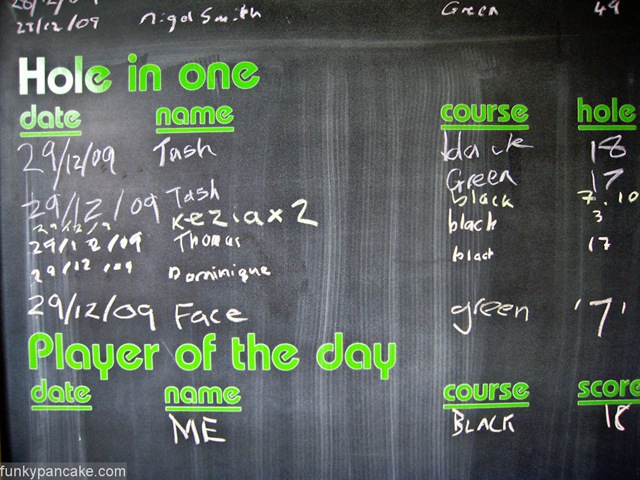 23/12/09 Nigel Smith Green 49
Hole in one
date name course hole
29/12/09 Tash black 18
29/12/09 Tash Green 17
Kezia x 2 black 7.10
29/12/09 Thomas black 3
29/12/09 Dominique black 17
29/12/09 Face green '7'
Player of the day
date name course score
ME BLACK 18
funkypancake.com